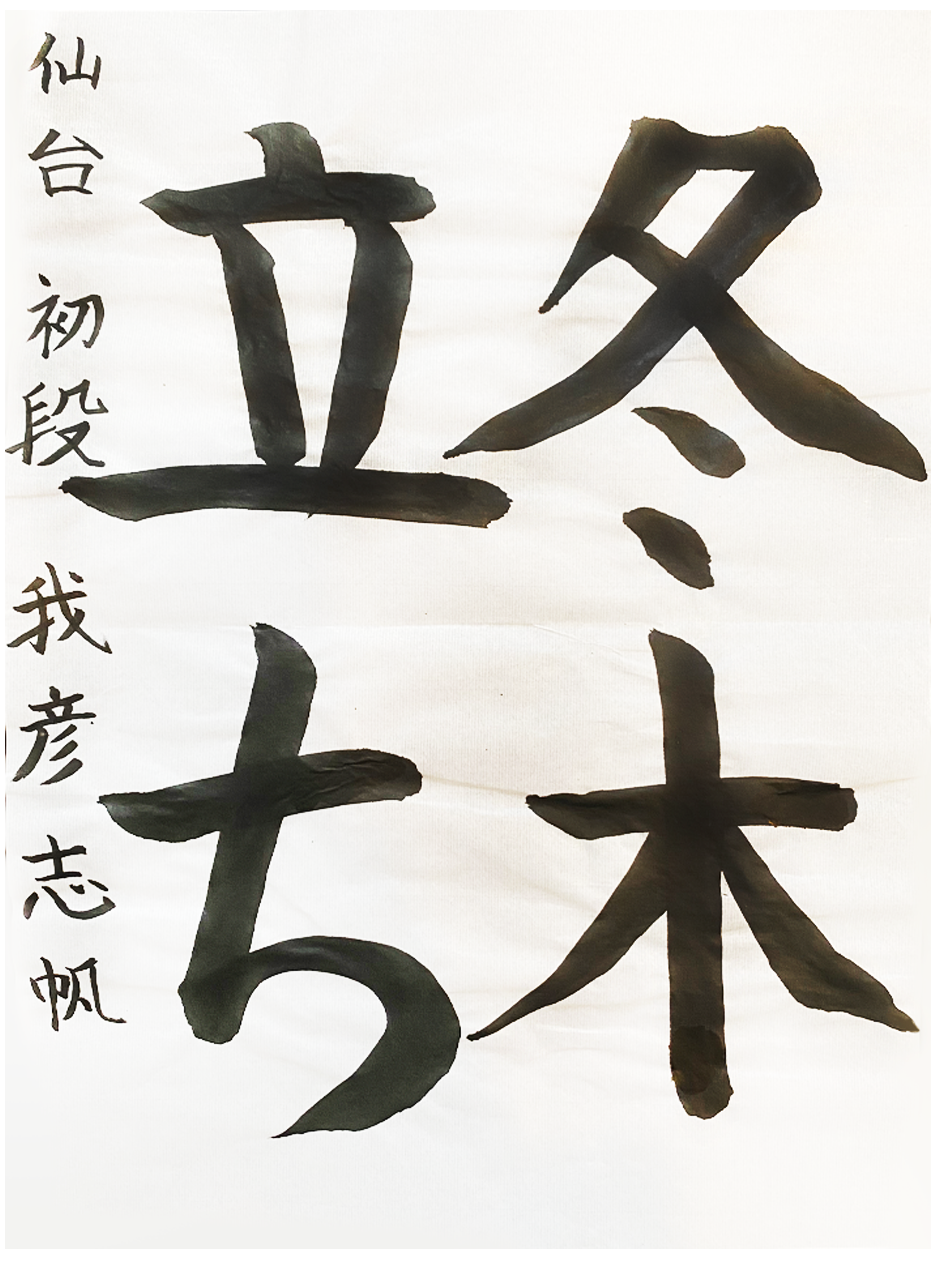 冬木
立ち
仙台 初段 我彦 志帆